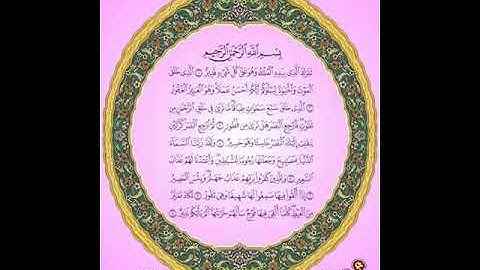 بِسْمِ اللَّهِ الرَّحْمَٰنِ الرَّحِيمِ
تَبَارَكَ الَّذِي بِيَدِهِ الْمُلْكُ وَهُوَ عَلَىٰ كُلِّ شَيْءٍ قَدِيرٌ ۝١ الَّذِي خَلَقَ
الْمَوْتَ وَالْحَيَاةَ لِيَبْلُوَكُمْ أَيُّكُمْ أَحْسَنُ عَمَلًا وَهُوَ الْعَزِيزُ الْغَفُورُ
۝٢ الَّذِي خَلَقَ سَبْعَ سَمَاوَاتٍ طِبَاقًا مَا تَرَىٰ فِي خَلْقِ الرَّحْمَٰنِ مِنْ
تَفَاوُتٍ فَارْجِعِ الْبَصَرَ هَلْ تَرَىٰ مِنْ فُطُورٍ ۝٣ ثُمَّ ارْجِعِ الْبَصَرَ كَرَّتَيْنِ
يَنْقَلِبْ إِلَيْكَ الْبَصَرُ خَاسِئًا وَهُوَ حَسِيرٌ ۝٤ وَلَقَدْ زَيَّنَّا السَّمَاءَ
الدُّنْيَا بِمَصَابِيحَ وَجَعَلْنَاهَا رُجُومًا لِلشَّيَاطِينِ وَأَعْتَدْنَا لَهُمْ عَذَابَ
السَّعِيرِ ۝٥ وَلِلَّذِينَ كَفَرُوا بِرَبِّهِمْ عَذَابُ جَهَنَّمَ وَبِئْسَ الْمَصِيرُ
۝٦ إِذَا أُلْقُوا فِيهَا سَمِعُوا لَهَا شَهِيقًا وَهِيَ تَفُورُ ۝٧ تَكَادُ تَمَيَّزُ
مِنَ الْغَيْظِ كُلَّمَا أُلْقِيَ فِيهَا فَوْجٌ سَأَلَهُمْ خَزَنَتُهَا أَلَمْ يَأْتِكُمْ نَذِيرٌ ۝٨